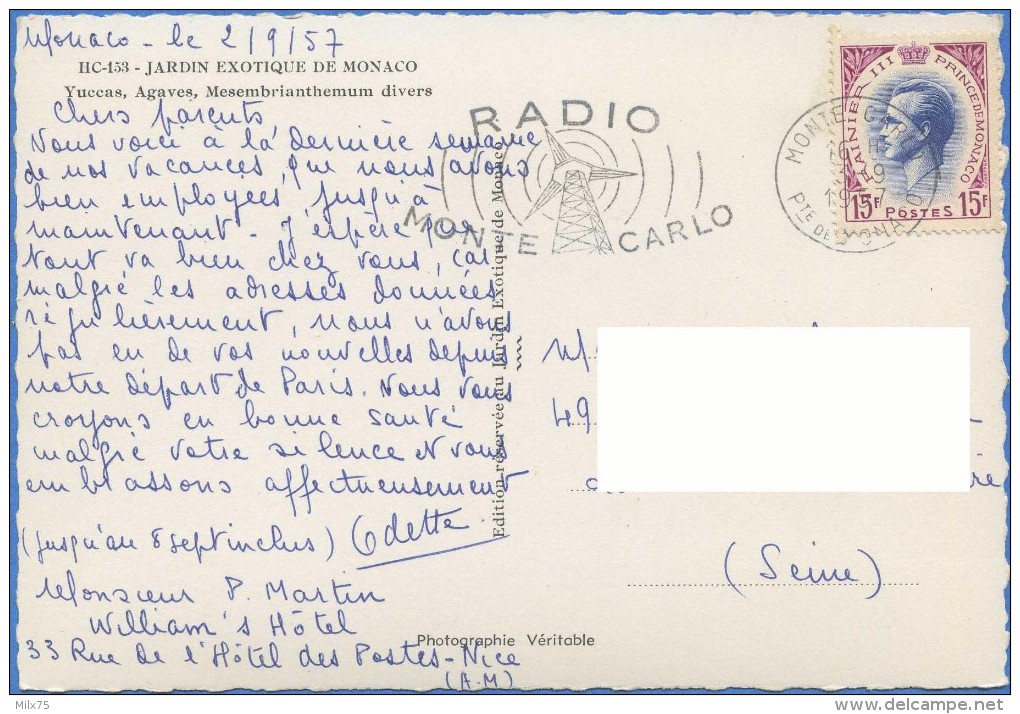 Monaco - le 2/9/57
HC-153 - JARDIN EXOTIQUE DE MONACO
Yuccas, Agaves, Mesembrianthemum divers
Chers parents
Nous voici à la dernière semaine
de nos vacances, que nous avons
bien employées jusqu'à
maintenant. J'espère que
tout va bien chez vous, car
malgré les adresses données
régulièrement, nous n'avons
pas eu de vos nouvelles depuis
notre départ de Paris. Nous vous
croyons en bonne santé
malgré votre silence et vous
embrassons affectueusement
(jusqu'au 8 sept inclus) Odette
Monsieur P. Martin
William's Hôtel
33 Rue de l'Hôtel des Postes - Nice
(A.M)
Edition réservée au Jardin Exotique de Monaco
Photographie Véritable
RADIO
MONTE CARLO
MONTE-CARLO
19 H
1957
Pte DE MONACO
RAINIER III PRINCE DE MONACO
15F POSTES 15F
49
(Seine)
Milx75
delcampe.net